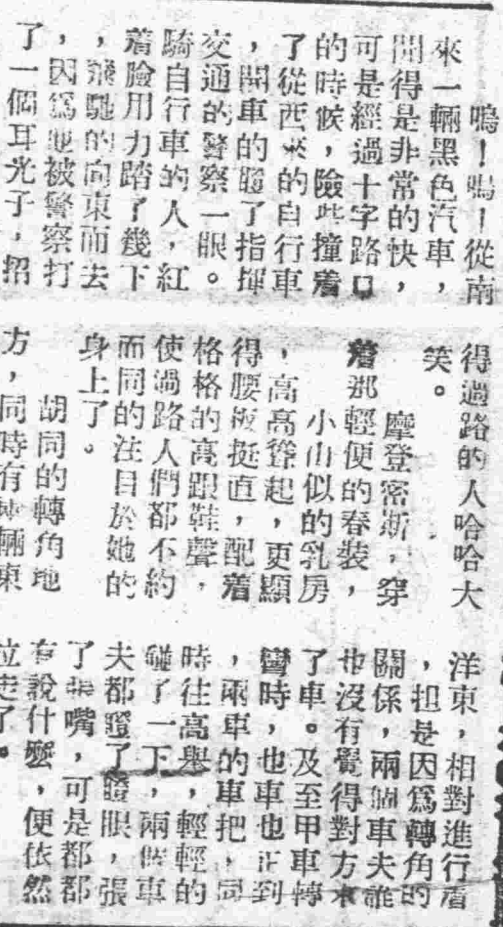 嗚!嗚!從南
來一輛黑色汽車,
開得是非常的快,
可是經過十字路口
的時候,險些撞着
了從西來的自行車
,開車的瞪了指揮
交通的警察一眼。
騎自行車的人,紅
着臉用力踏了幾下
,飛馳的向東而去
,因爲他被警察打
了一個耳光子,招
得過路的人哈哈大
笑。
摩登密斯,穿
着那輕便的春裝,
小山似的乳房
,高高聳起,更顯
得腰板挺直,配着
格格的高跟鞋聲,
使過路人們都不約
而同的注目於她的
身上了。
胡同的轉角地
方,同時有兩輛東
洋東,相對進行着
,担是因爲轉角的
關係,兩個車夫誰
也沒有覺得對方來
了車。及至甲車轉
彎時,也車也正到
,兩車的車把,同
時往高舉,輕輕的
碰了一下,兩個車
夫都瞪了瞪眼,張
了張嘴,可是都都
有說什麼,便依然
拉走了。